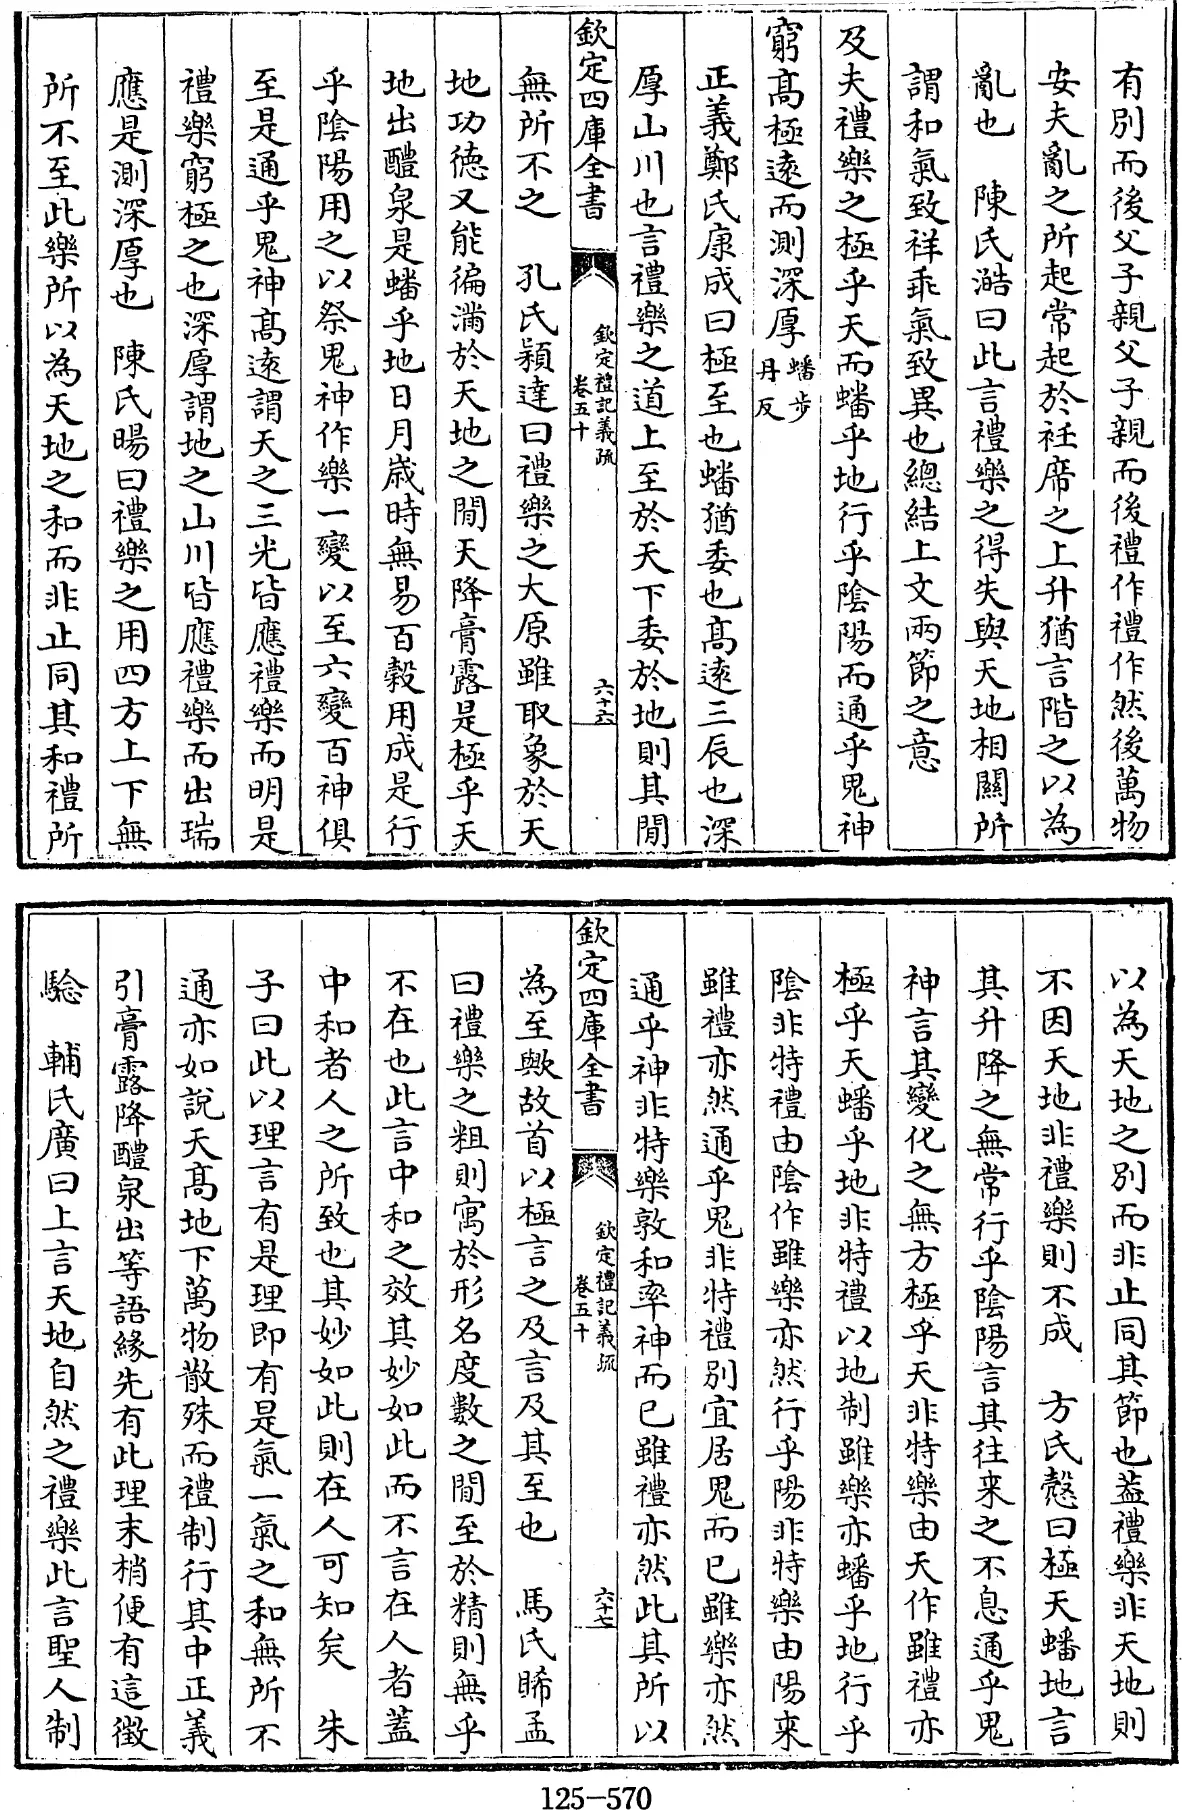 有別而後父子親父子親而後禮作禮作然後萬物
安夫亂之所起常起於袵席之上升猶言階之以為
亂也　陳氏澔曰此言禮樂之得失與天地相關所
謂和氣致祥乖氣致異也總結上文兩節之意
及夫禮樂之極乎天而蟠乎地行乎陰陽而通乎鬼神
窮髙極逺而測深厚蟠步丹反
正義鄭氏康成曰極至也蟠猶委也髙逺三辰也深
厚山川也言禮樂之道上至於天下委於地則其間
欽定四庫全書　欽定禮記義疏卷五十　六十六
無所不之　孔氏穎達曰禮樂之大原雖取象於天
地功德又能徧滿於天地之間天降膏露是極乎天
地出醴泉是蟠乎地日月嵗時無易百榖用成是行
乎陰陽用之以祭鬼神作樂一變以至六變百神俱
至是通乎鬼神髙逺謂天之三光皆應禮樂而明是
禮樂窮極之也深厚謂地之山川皆應禮樂而出瑞
應是測深厚也　陳氏暘曰禮樂之用四方上下無
所不至此樂所以為天地之和而非止同其和禮所
以為天地之別而非止同其節也葢禮樂非天地則
不因天地非禮樂則不成　方氏慤曰極天蟠地言
其升降之無常行乎陰陽言其往來之不息通乎鬼
神言其變化之無方極乎天非特樂由天作雖禮亦
極乎天蟠乎地非特禮以地制雖樂亦蟠乎地行乎
陰非特禮由陰作雖樂亦然行乎陽非特樂由陽來
雖禮亦然通乎鬼非特禮別宜居鬼而已雖樂亦然
通乎神非特樂敦和率神而已雖禮亦然此其所以
欽定四庫全書　欽定禮記義疏卷五十　六十七
為至歟故首以極言之及言及其至也　馬氏睎孟
曰禮樂之粗則寓於形名度數之間至於精則無乎
不在也此言中和之效其妙如此而不言在人者蓋
中和者人之所致也其妙如此則在人可知矣　朱
子曰此以理言有是理即有是氣一氣之和無所不
通亦如說天髙地下萬物散殊而禮制行其中正義
引膏露降醴泉出等語緣先有此理末梢便有這徵
驗　輔氏廣曰上言天地自然之禮樂此言聖人制
125-570